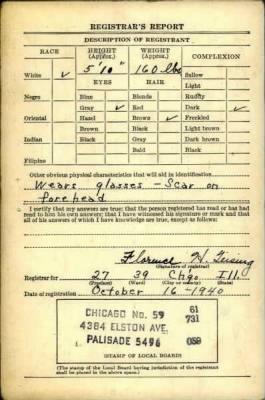 REGISTRAR'S REPORT
DESCRIPTION OF REGISTRANT
RACE HEIGHT (Approx.) WEIGHT (Approx.) COMPLEXION
5' 10" 160 lbs
White ✓ Sallow
EYES HAIR Light
Negro Blue Blonde Ruddy
Gray ✓ Red Dark ✓
Oriental Hazel Brown ✓ Freckled
Brown Black Light brown
Indian Black Gray Dark brown
Bald Black
Filipino
Other obvious physical characteristics that will aid in identification
Wears glasses - Scar on
forehead
I certify that my answers are true; that the person registered has read or has had
read to him his own answers; that I have witnessed his signature or mark and that
all of his answers of which I have knowledge are true, except as follows:
Florence H.
(Signature of registrar)
Registrar for 27 39 Ch'go Ill.
(Precinct) (Ward) (City or county) (State)
Date of registration October 16-1940
CHICAGO No. 59 61
4384 ELSTON AVE. 731
PALISADE 5496 059
(STAMP OF LOCAL BOARD)
(The stamp of the Local Board having jurisdiction of the registrant
shall be placed in the above space.)